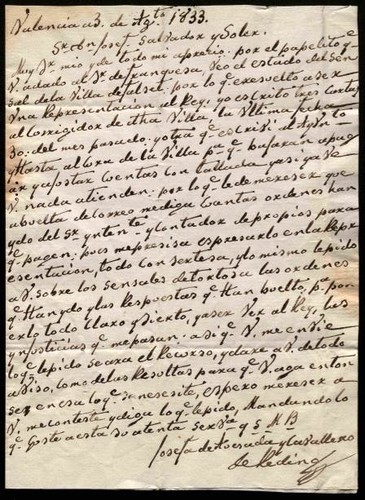 Valencia a 3. de Ag.to 1833.
S.r Dn Josef Salvador y Soler.
Muy S.r mio y de todo mi aprecio: por el papelito q.e
V. a dado al S.r de franquesa, veo el estado del Sen
sal de la Villa de falset: por lo q.e resuelto aser
Una Representacion al Rey, yo escrito tres cartas
al corregidor de dha Villa, la Ultima fecha
30. del mes pasado: y otra q.e escriví al Ayto
y asta al cura de la Villa pa q.e bugaran a pag
ar y ajostar cuentas con
V. nada atienden: por lo q.e le de mereser que
a buelta de correo me diga cuantas ordenes han
ydo del S.r yntente y Contador de propios para
q.e pagen: pues mepresisa espresarlo en la Repr
esentacion, todo con sertesa, y lo mismo le pido
a V. sobre los sensales de tortosa las ordenes
q.e Han ydo y las Respuestas q.e Han buelto, p.a pon
erlo todo Claro y Sierto, y aser Ver al Rey, las
ynjusticias q.e me pasan: a si q.e V. me envie
lo q.e le pido se ara el Recurso, y dare a V. de todo
abiso, como de las Resultas para q.e V. aga enton
ses en esa lo q.e se nesesite, espero mereser a
V. me conteste y diga lo q.e le pido, Mandando lo
q.e Goste a esta su atenta serv.ra q S M B
Josefa de Caballero
de Reding